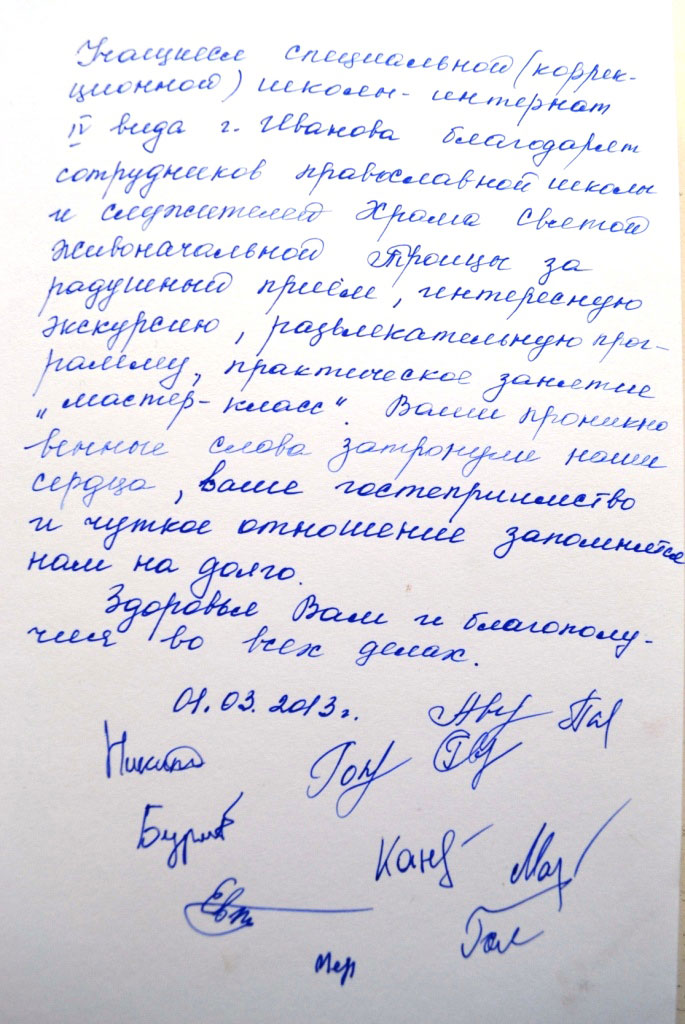 Учащиеся специальной (коррек-
ционной) школы-интернат
IV вида г. Иванова благодарят
сотрудников православной школы
и служителей Храма Святой
Живоначальной Троицы за
радушный приём, интересную
экскурсию, развлекательную прог-
рамму, практическое занятие
„мастер-класс“. Ваши проникно
венные слова затронули наши
сердца, ваше гостеприимство
и чуткое отношение запомнятся
нам на долго.
Здоровья Вам и благополу-
чия во всех делах.
01.03.2013г.